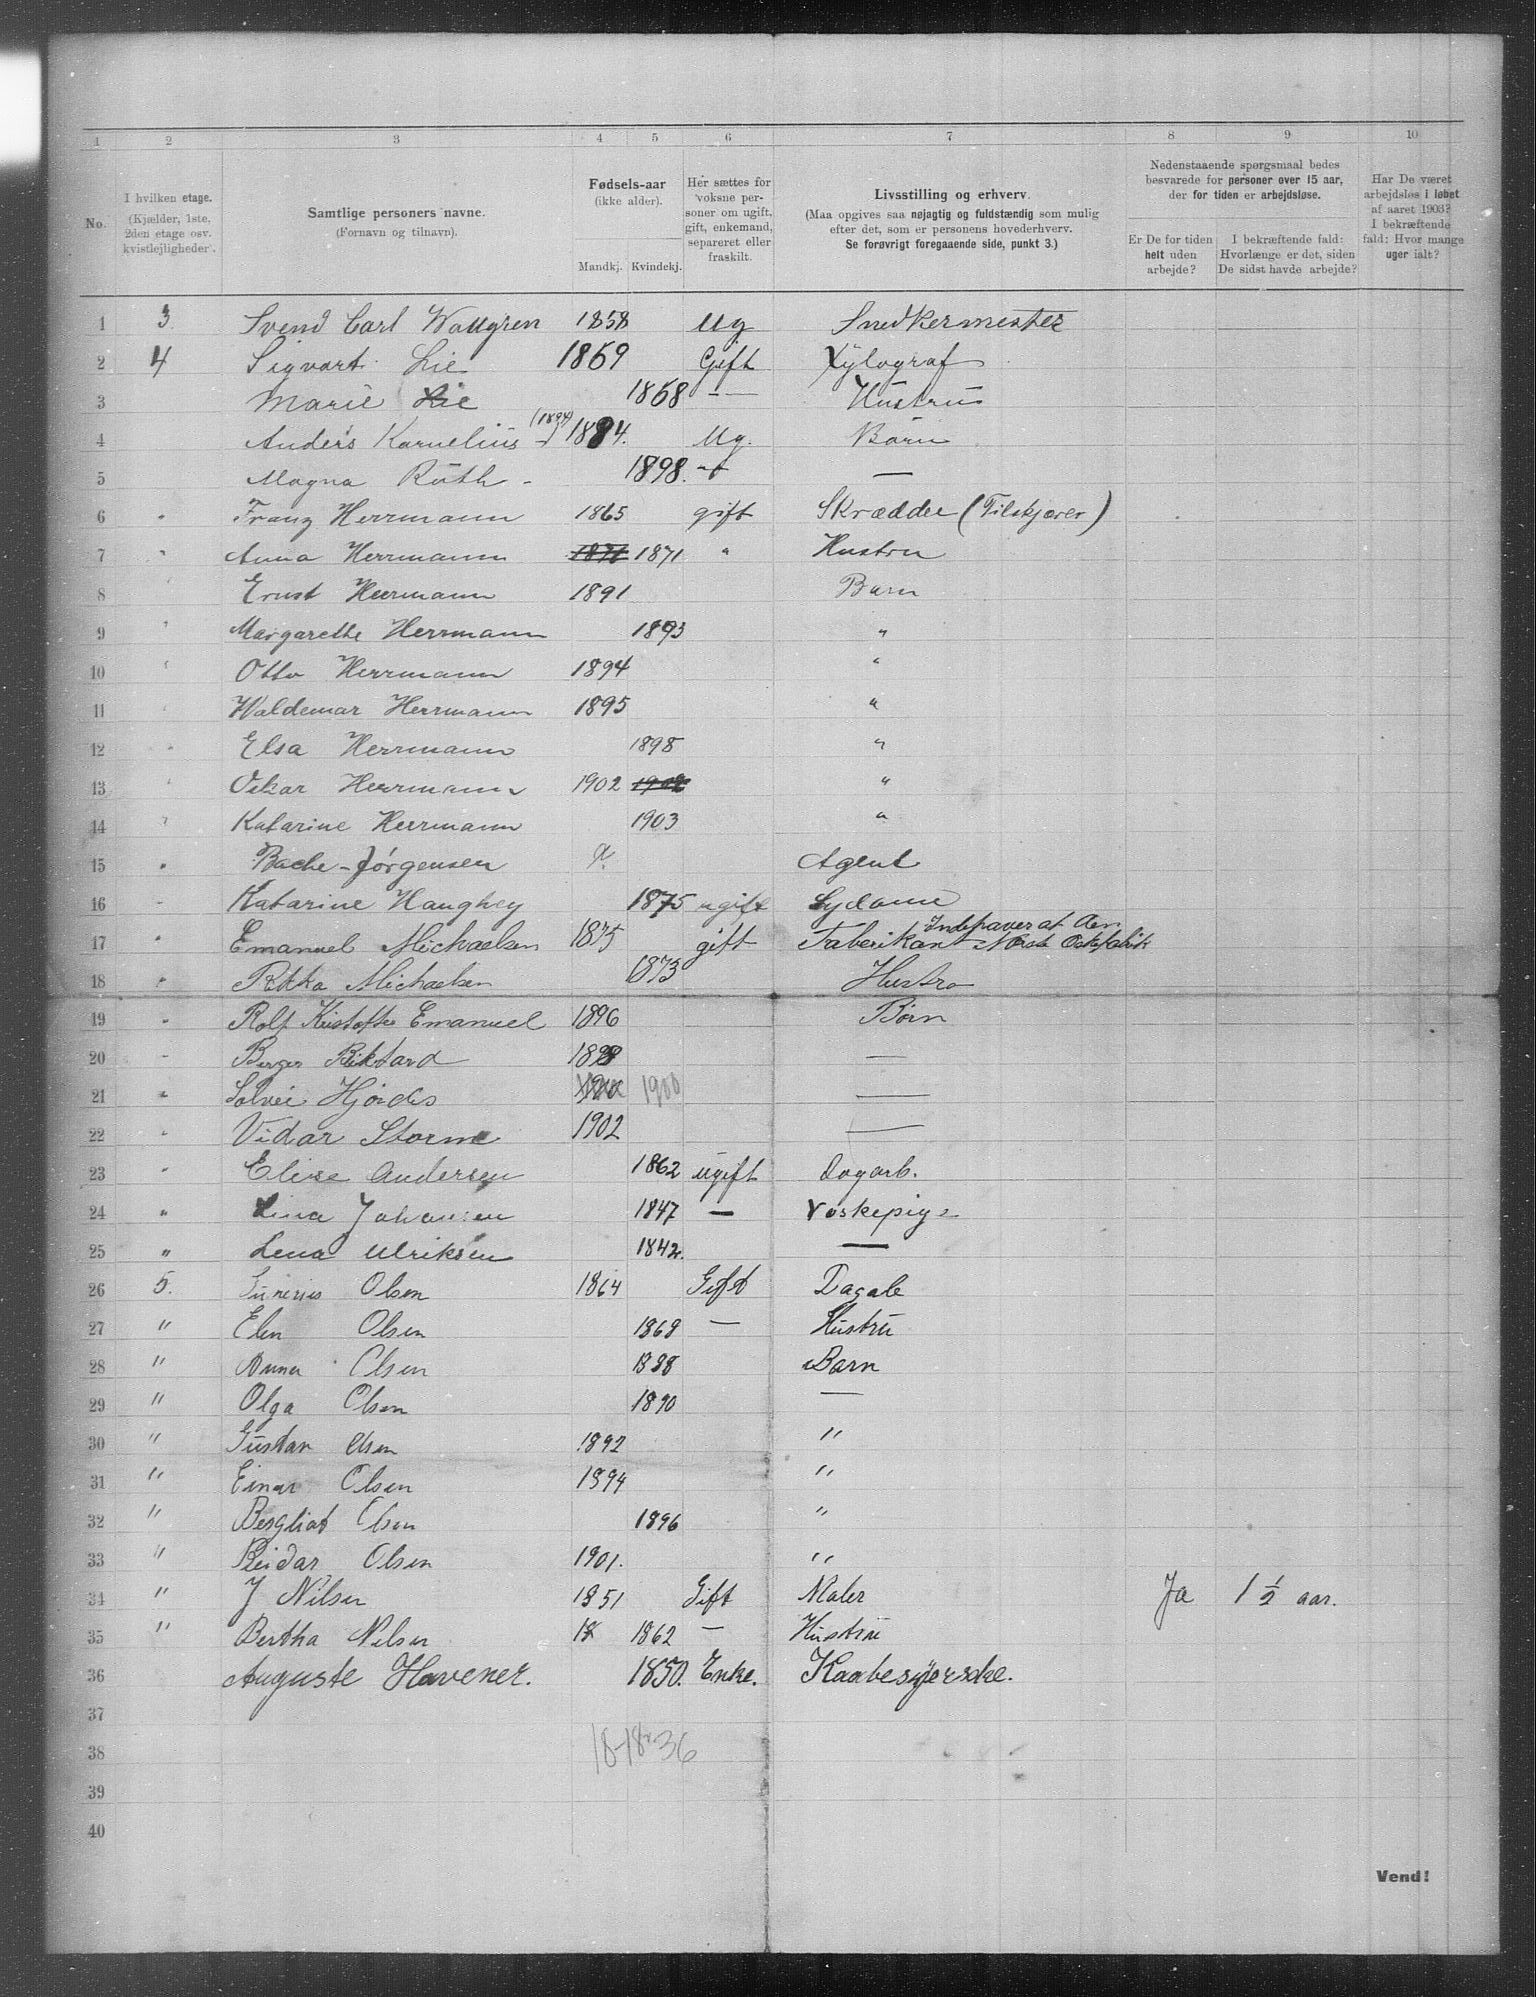 1 2 3 4 5 6 7 8 9 10
No.
I hvilken etage. (Kjælder, 1ste, 2den etage osv. kvistlejligheder).
Samtlige personers navne. (Fornavn og tilnavn).
Fødsels-aar (ikke alder).
Mandkj. Kvindekj.
Her sættes for voksne personer om ugift, gift, enkemand, separeret eller fraskilt.
Livsstilling og erhverv.
(Maa opgives saa nøjagtig og fuldstændig som mulig efter det, som er personens hovederhverv. Se forøvrigt foregaaende side, punkt 3.)
Nedenstaaende spørgsmaal bedes besvarede for personer over 15 aar, der for tiden er arbejdsløse.
Er De for tiden helt uden arbejde?
I bekræftende fald: Hvorlænge er det, siden De sidst havde arbejde?
Har De været arbejdsløs i løbet af aaret 1903? I bekræftende fald: Hvor mange uger ialt?
1 3 Svend Carl Wallgren 1858 Ug Snedkermester
2 4 Sigvart Lie 1869 Gift Xylograf
3 Marie Lie 1868 — Hustru
4 Anders Kornelius - (1894) 1884. Ug. Barn
5 Magna Ruth - 1898. —
6 " Franz Herrmann 1865 gift Skrædder (Tilskjærer)
7 " Anna Herrmann 1871 1871 " Hustru
8 " Ernst Herrmann 1891 Barn
9 " Margarethe Herrmann 1893 "
10 " Otto Herrmann 1894 "
11 " Waldemar Herrmann 1895 "
12 " Elsa Herrmann 1898 "
13 " Oskar Herrmann 1902 1902 "
14 " Katarine Herrmann 1903 "
15 " Bache-Jørgensen Agent
16 " Katarine Haughey 1875 ugift Sydame
17 " Emanuel Michaelsen 1875 gift Faberikant Indehaver af den Norsk
18 " Michaelsen 1873 Hustru
19 " Rolf Kristoffer Emanuel 1896 Børn
20 " Birger Rikard 1898 —
21 " Solvei Hjørdis 1900 —
22 " Vidar Storm 1902 —
23 " Elise Andersen 1862 ugift Dagarb.
24 " Lina Johansen 1847 — Vaskepige
25 " Lena Ulriksen 1842. —
26 5. Olsen 1864 Gift
27 " Elen Olsen 1868 — Hustru
28 " Anna Olsen 1888 Barn
29 " Olga Olsen 1890 —
30 " Gustav Olsen 1892 "
31 " Einar Olsen 1894 "
32 " Bergliot Olsen 1896 "
33 " Reidar Olsen 1901. "
34 " J Nilsen 1851 Gift Maler Ja 1 1/2 aar.
35 " Bertha Nilsen 18 1862 — Hustru
36 Auguste Havener. 1850. Enke. Kaabesyerske.
37
38 18-18 36
39
40
Vend!